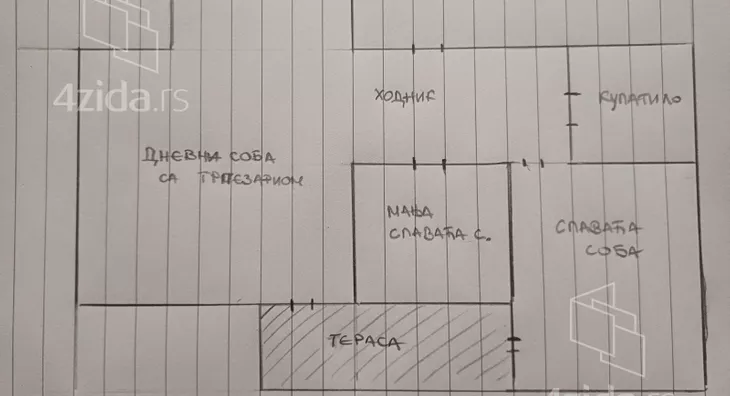 4zida.rs
ХОДНИК
КУПАТИЛО
ДНЕВНА СОБА
СА ТРПЕЗАРИОМ
МАЊА
СПАВАЋА С.
СПАВАЋА
СОБА
ТЕРАСА
4zida.rs